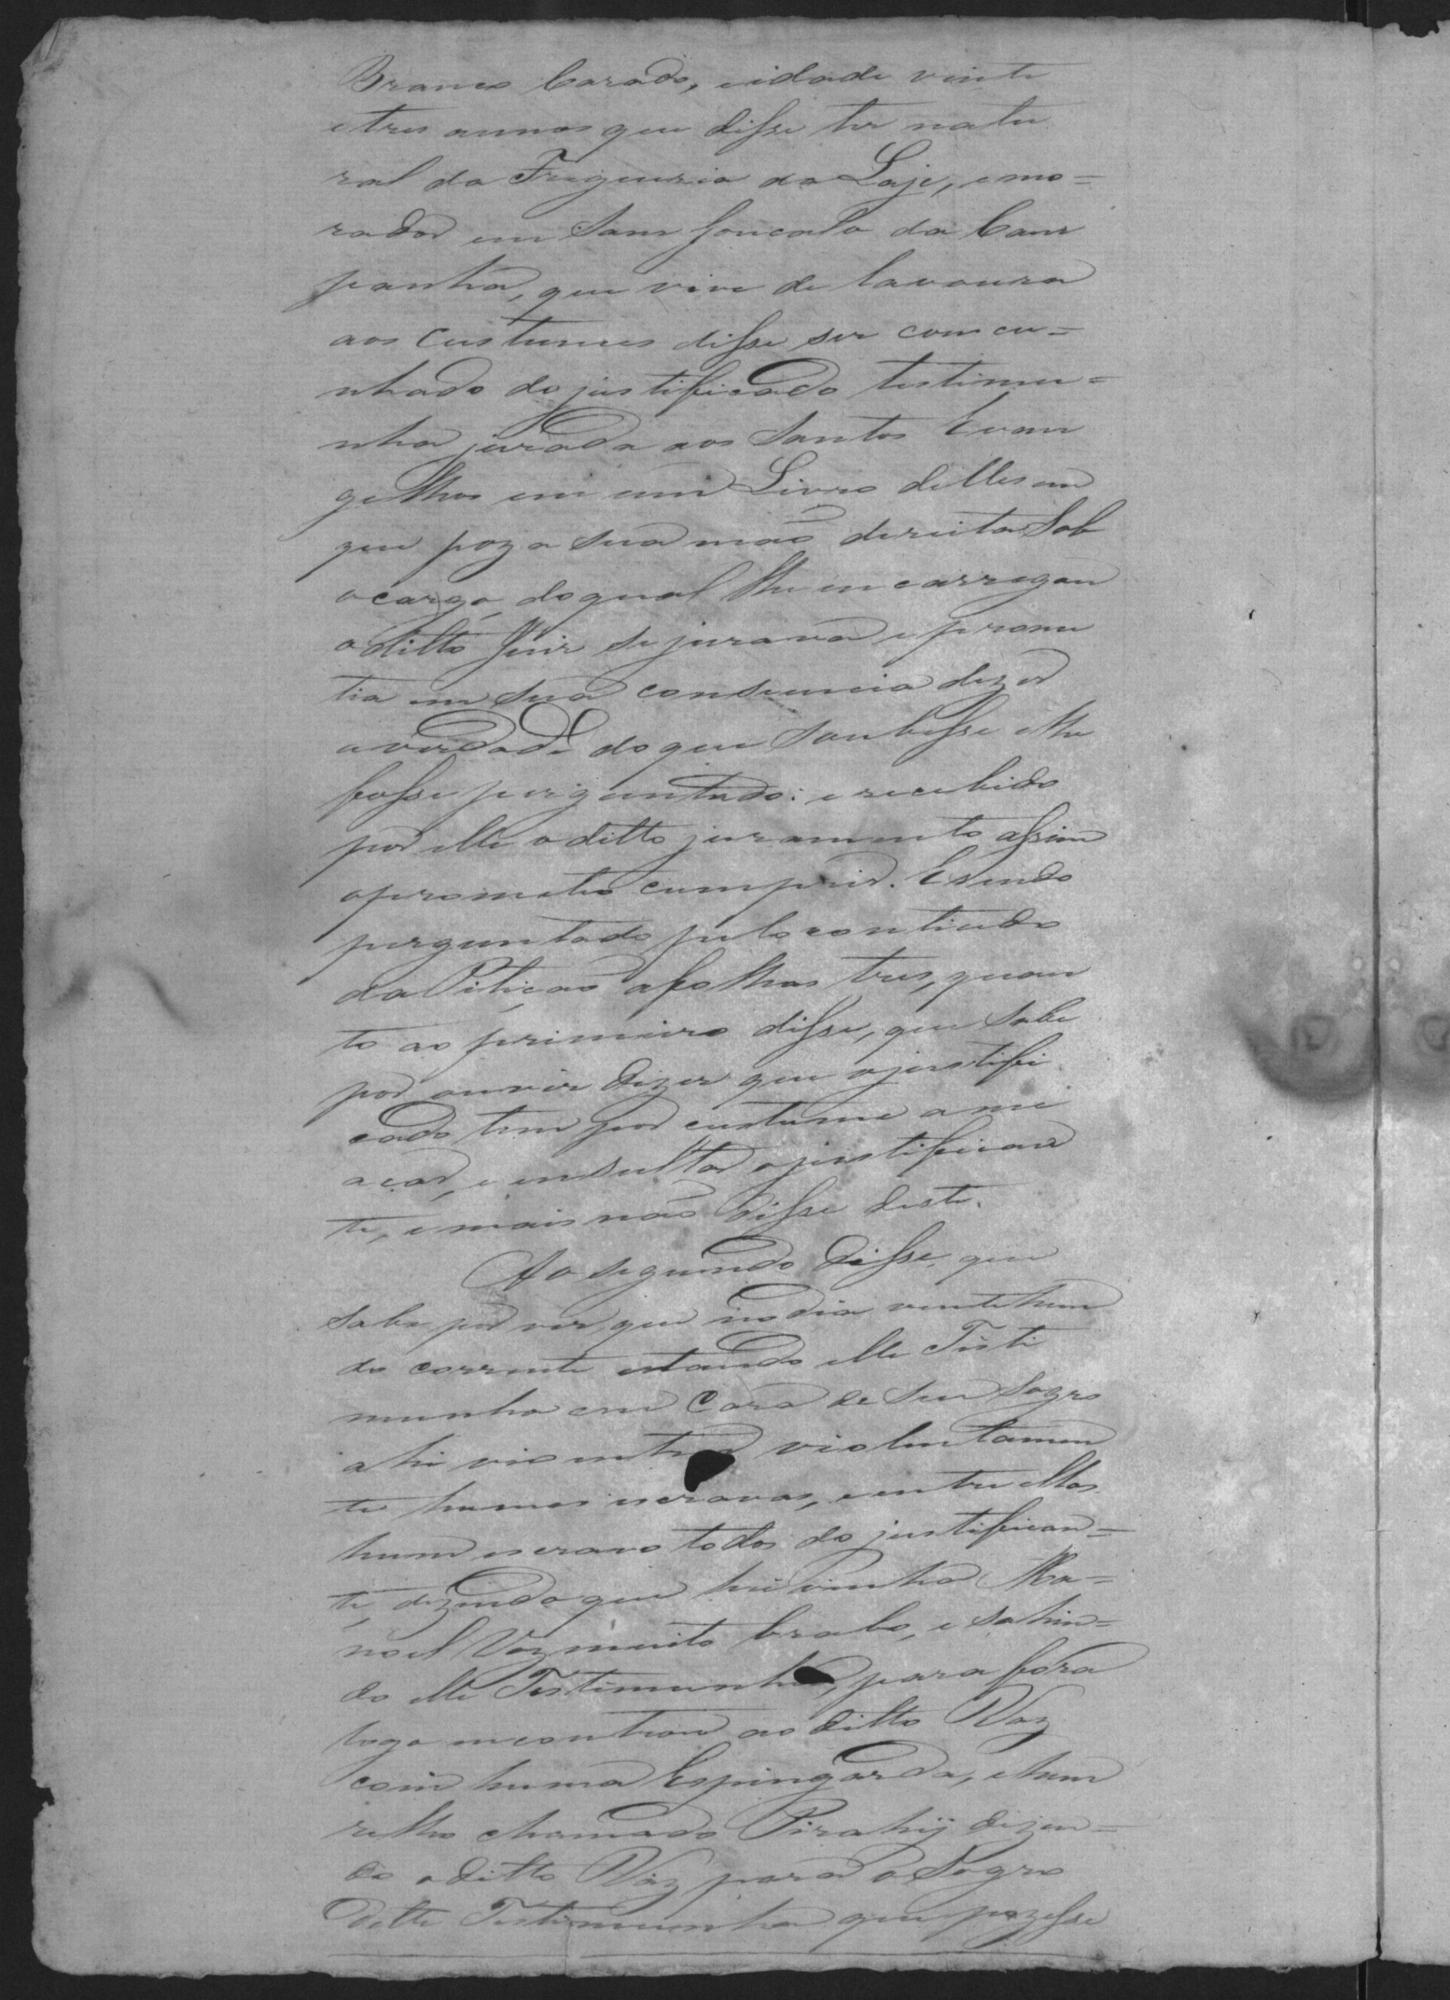 Branco Casado, e idade vinte
e tres annos que disse ter natu
ral da Freguezia da Laje, e mo=
rador em Sam Goncalo da Cam
panha, que vive de lavoura
aos custumes disse ser com cu=
nhado do justificado testimu=
nha jurada aos Santos Evan
gelhos em um Livro delles em
que poz a sua mão direita Sob
o cargo do qual lhe encarregou
o ditto Juiz se jurava e prome
tia em sua consciencia dizer
a verdade do que Soubesse e lhe
fosse perguntado: e recebido
por elle o ditto juramento assim
o prometeo cumprir. E sendo
perguntado pelo contiudo
da Petição a folhas tres, quan
to ao primeiro disse, que Sabe
por ouvir dizer que o justifi
cado tem por custume ame
açar, e insultar o justifican
te, e mais não disse deste.
Ao segundo disse, que
Sabe por ver, que no dia vinte hum
do corrente estando elle Testi
munha em Casa de Seu Sogro
ahi vio entrar violentamen
te humas escravas, e entre ellas
hum escravo todos do justifican=
te, dizendo que hi vinha Ma=
noel Vaz muito brabo, e sahin=
do elle Testimunha, para fóra
logo encontrou ao ditto Vaz
com huma Espingarda, e hum
relho chamado Pirahÿ dizen=
do o ditto Vaz para o Sogro
delle Testimunha que pozesse